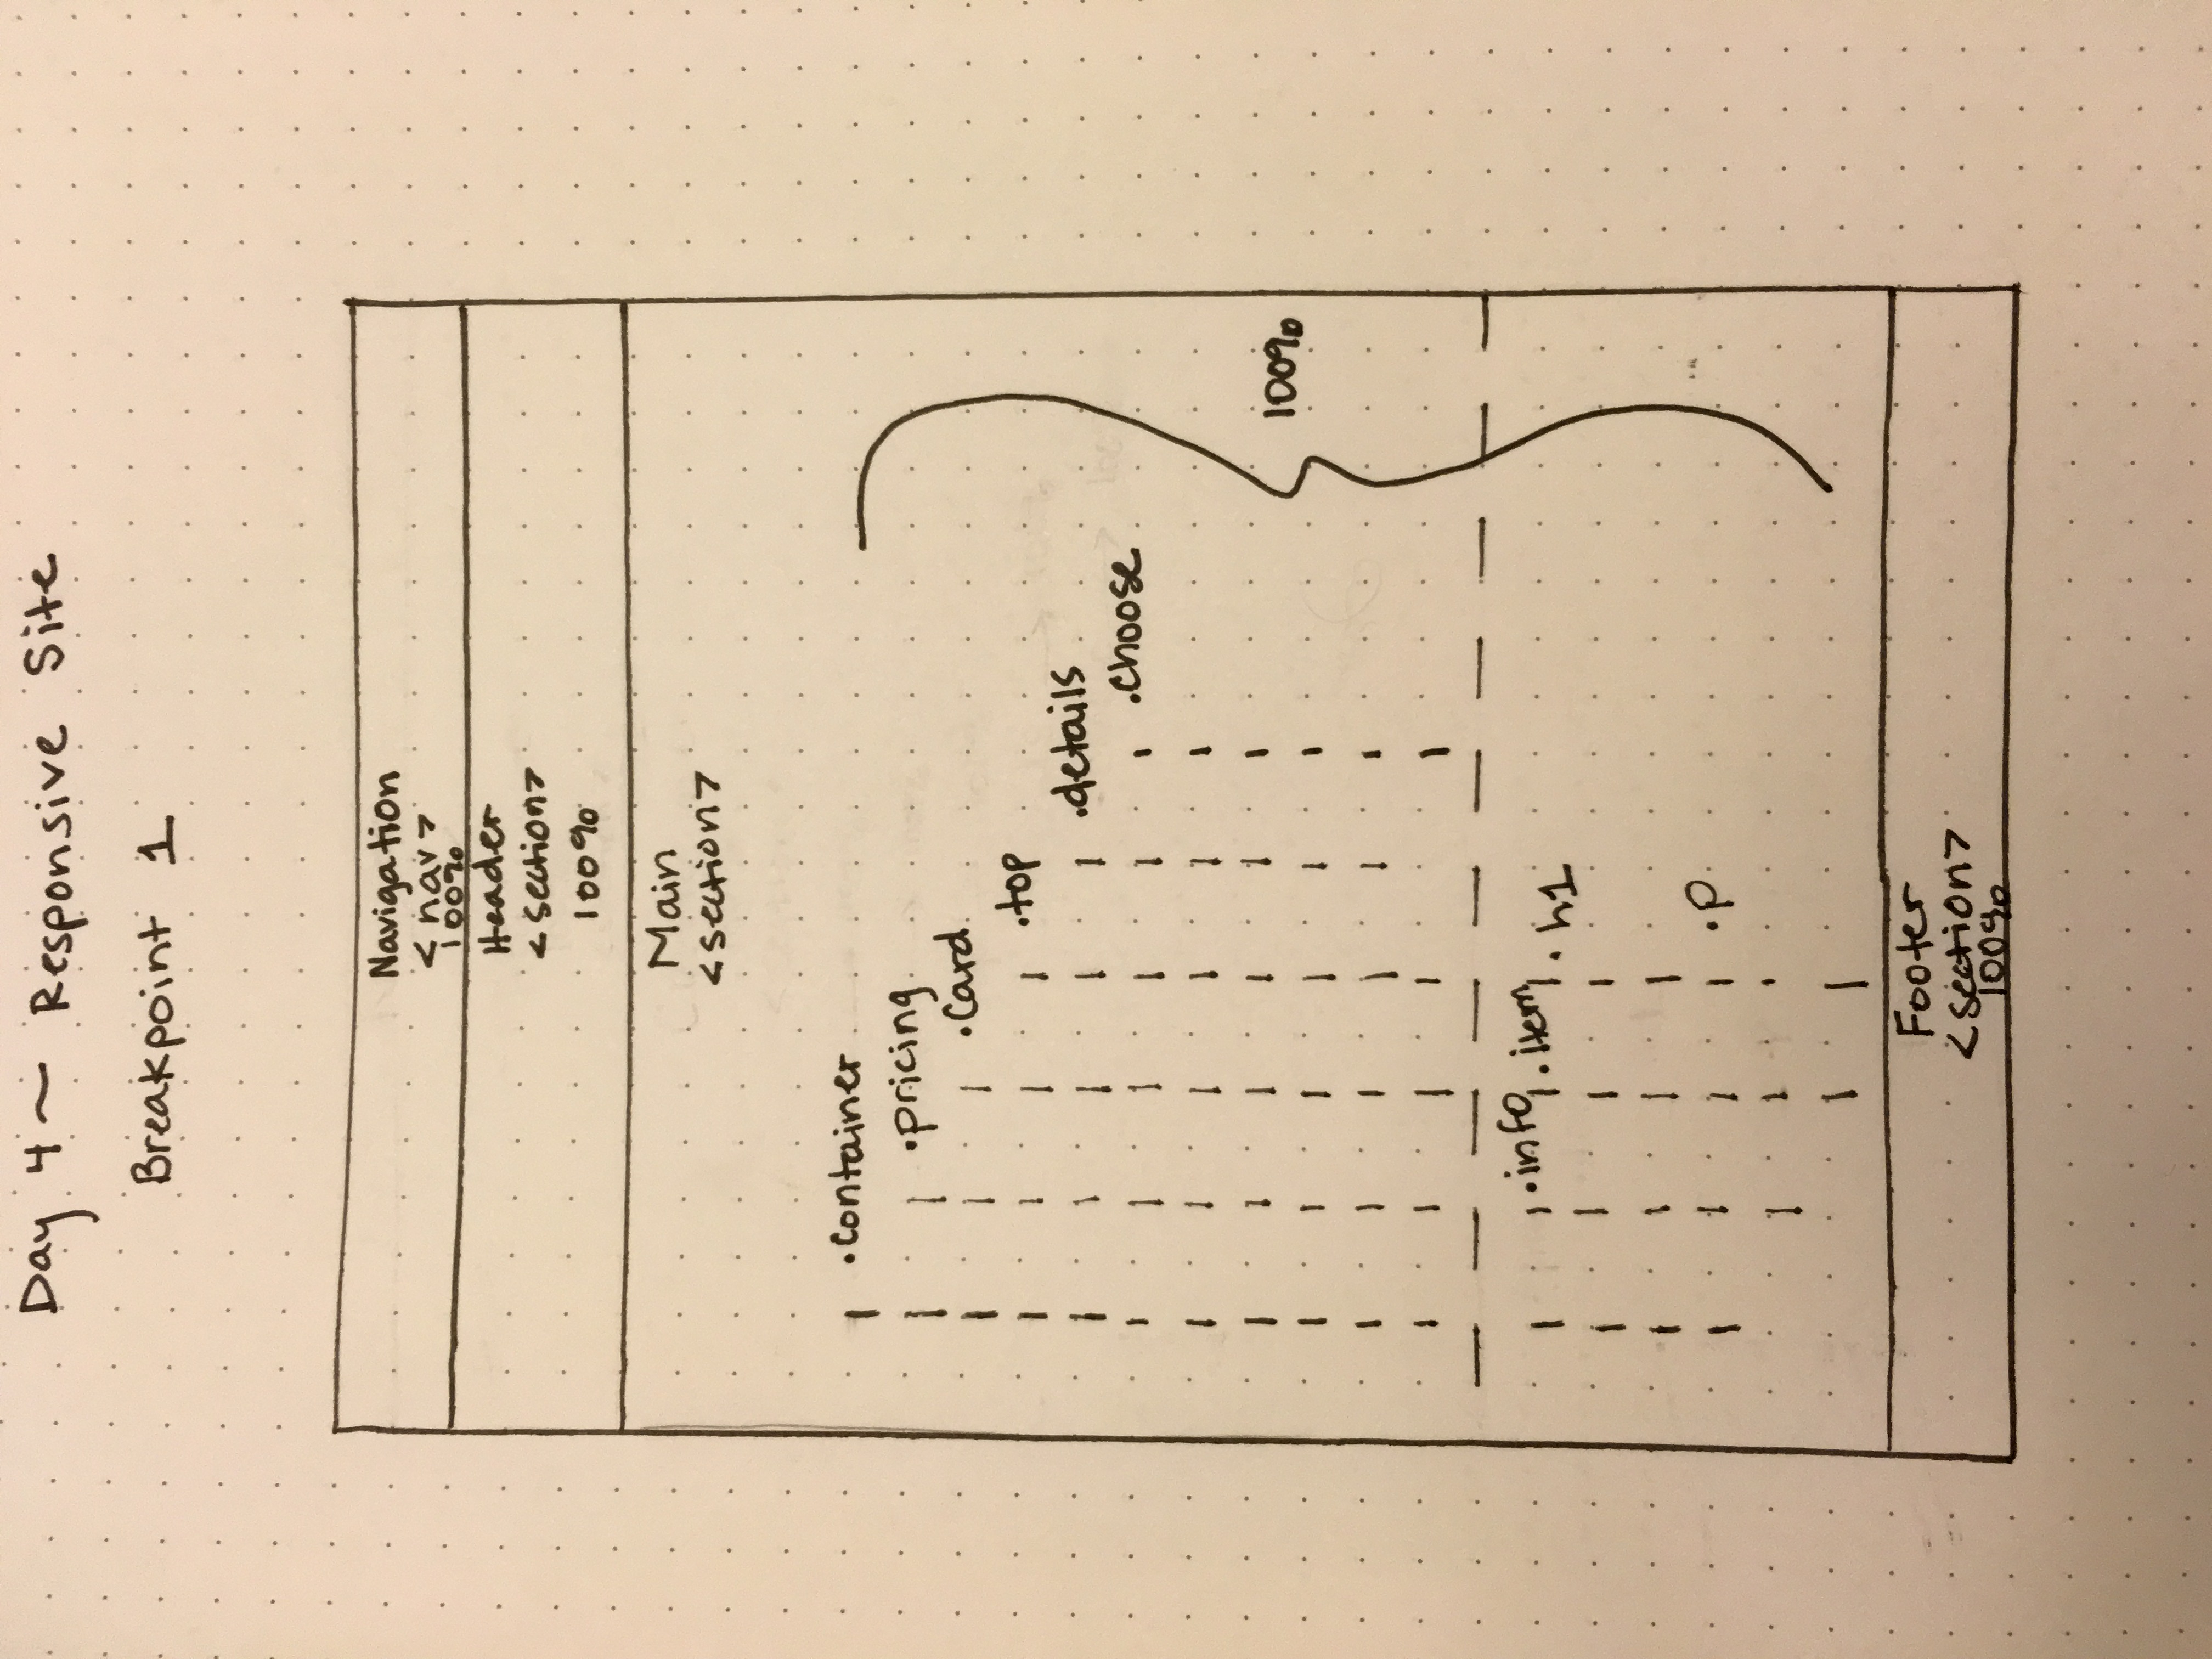 Day 4 ~ Responsive Site
Breakpoint 1
Navigation
<nav>
100%
Header
<section>
100%
Main
<section>
.container
.pricing
.card
.top
.details
.choose
100%
.info .item .h1
.p
Footer
<section>
100%